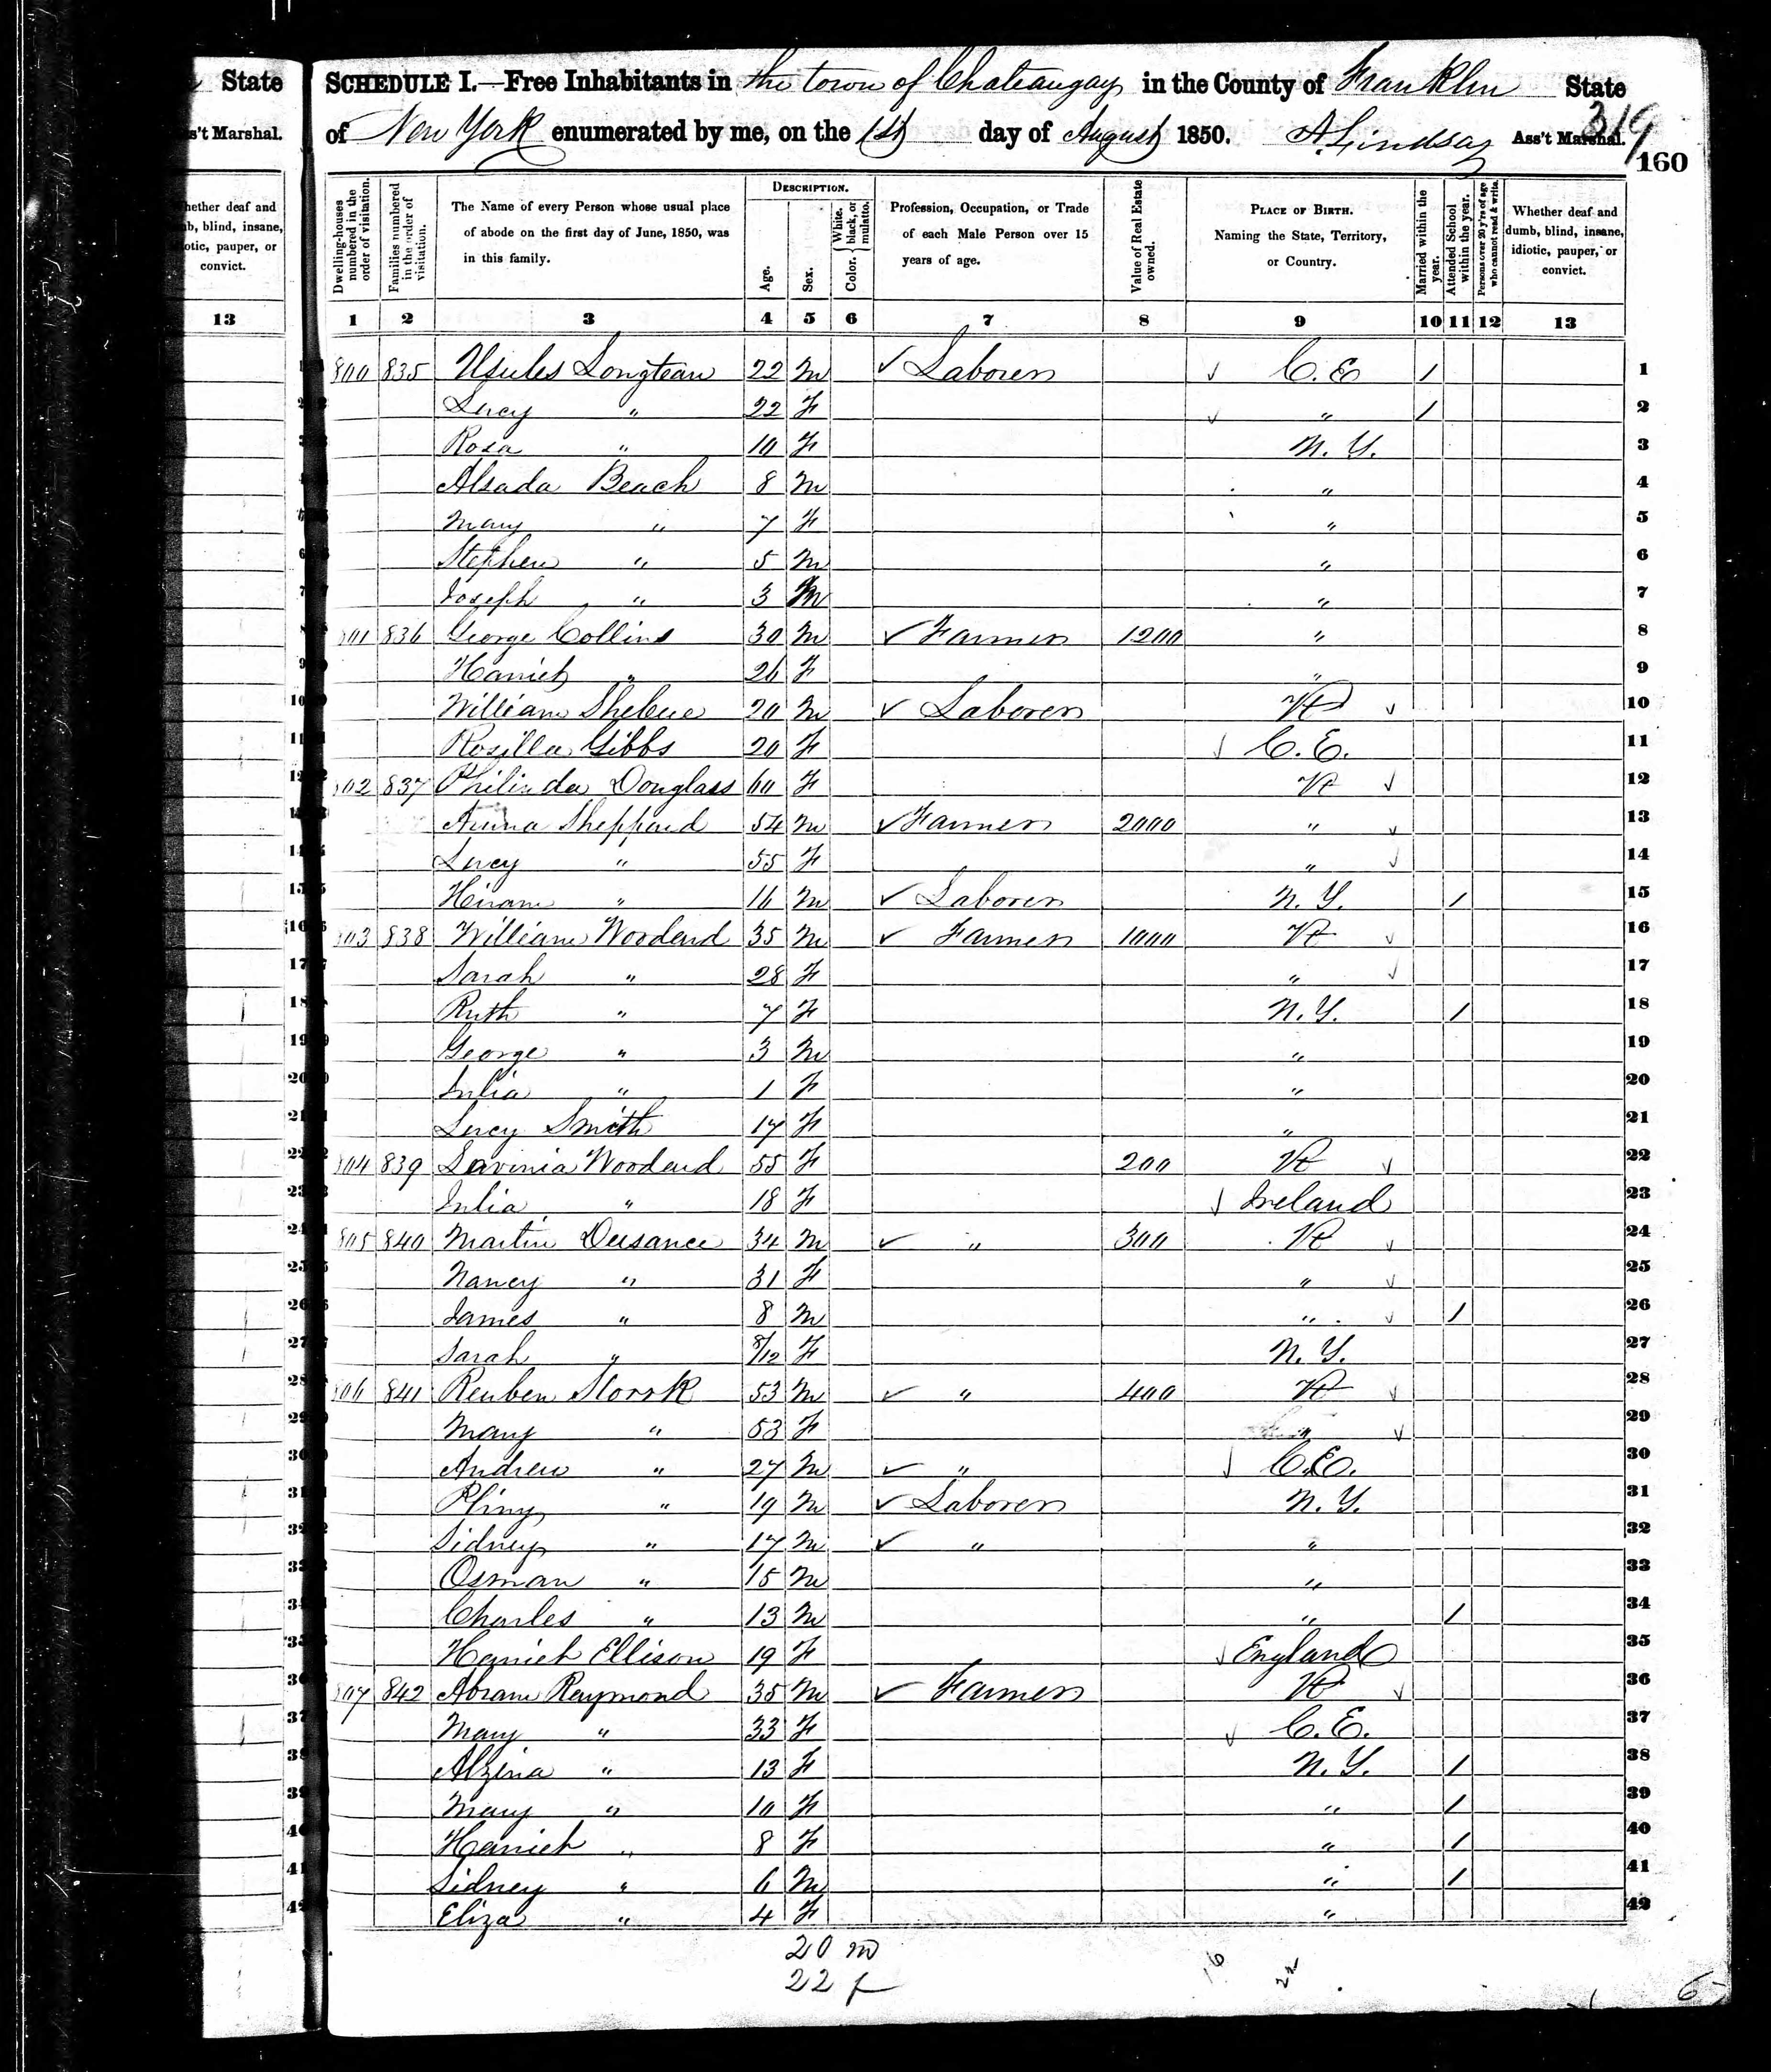 State
SCHEDULE I.—Free Inhabitants in the town of Chateaugay in the County of Franklin State
s't Marshal.
of New York enumerated by me, on the 1st day of August 1850. A. Lindsay Ass't Marshal.
319
160
hether deaf and
b, blind, insane,
otic, pauper, or
convict.
Dwelling-houses numbered in the order of visitation.
Families numbered in the order of visitation.
The Name of every Person whose usual place of abode on the first day of June, 1850, was in this family.
DESCRIPTION.
Age.
Sex.
Color. { White, black, or mulatto.
Profession, Occupation, or Trade of each Male Person over 15 years of age.
Value of Real Estate owned.
PLACE OF BIRTH. Naming the State, Territory, or Country.
Married within the year.
Attended School within the year.
Persons over 20 y'rs of age who cannot read & write.
Whether deaf and dumb, blind, insane, idiotic, pauper, or convict.
13 1 2 3 4 5 6 7 8 9 10 11 12 13
800 835 Longteau 22 M ✓ Laborer ✓ C. E 1 1
Lucy " 22 F ✓ " 1 2
Rosa " 10 F N. Y. 3
Alsada Beach 8 M " 4
Mary " 7 F " 5
Stephen " 5 M " 6
Joseph " 3 M " 7
801 836 George Collins 30 M ✓ Farmer 1200 " 8
Harriet " 26 F " 9
William 20 M ✓ Laborer Vt ✓ 10
Rosilla Gibbs 20 F ✓ C. E. 11
802 837 Philinda Douglass 60 F Vt ✓ 12
Sheppard 54 M ✓ Farmer 2000 " ✓ 13
Lucy " 55 F " ✓ 14
Hiram " 16 M ✓ Laborer N. Y. 1 15
803 838 William Woodard 35 M ✓ Farmer 1000 Vt ✓ 16
Sarah " 28 F " ✓ 17
Ruth " 7 F N. Y. 1 18
George " 3 M " 19
Julia " 1 F " 20
Lucy Smith 17 F " 21
804 839 Lavinia Woodard 55 F 200 Vt ✓ 22
Julia " 18 F ✓ Ireland 23
805 840 Martin Dusance 34 M ✓ " 300 Vt ✓ 24
Nancy " 31 F " ✓ 25
James " 8 M " ✓ 1 26
Sarah " 8/12 F N. Y. 27
806 841 Reuben Storrk 53 M ✓ " 400 Vt ✓ 28
Mary " 53 F " ✓ 29
Andrew " 27 M ✓ " ✓ C. E. 30
Pliny " 19 M ✓ Laborer N. Y. 31
Sidney " 17 M ✓ " " 32
Osman " 15 M " 33
Charles " 13 M " 1 34
Harriet Ellison 19 F ✓ England 35
807 842 Abram Raymond 35 M ✓ Farmer Vt ✓ 36
Mary " 33 F ✓ C. E. 37
Alzina " 13 F N. Y. 1 38
Mary " 10 F " 1 39
Harriet " 8 F " 1 40
Sidney " 6 M " 1 41
Eliza " 4 F " 42
20 m
22 f
16 22